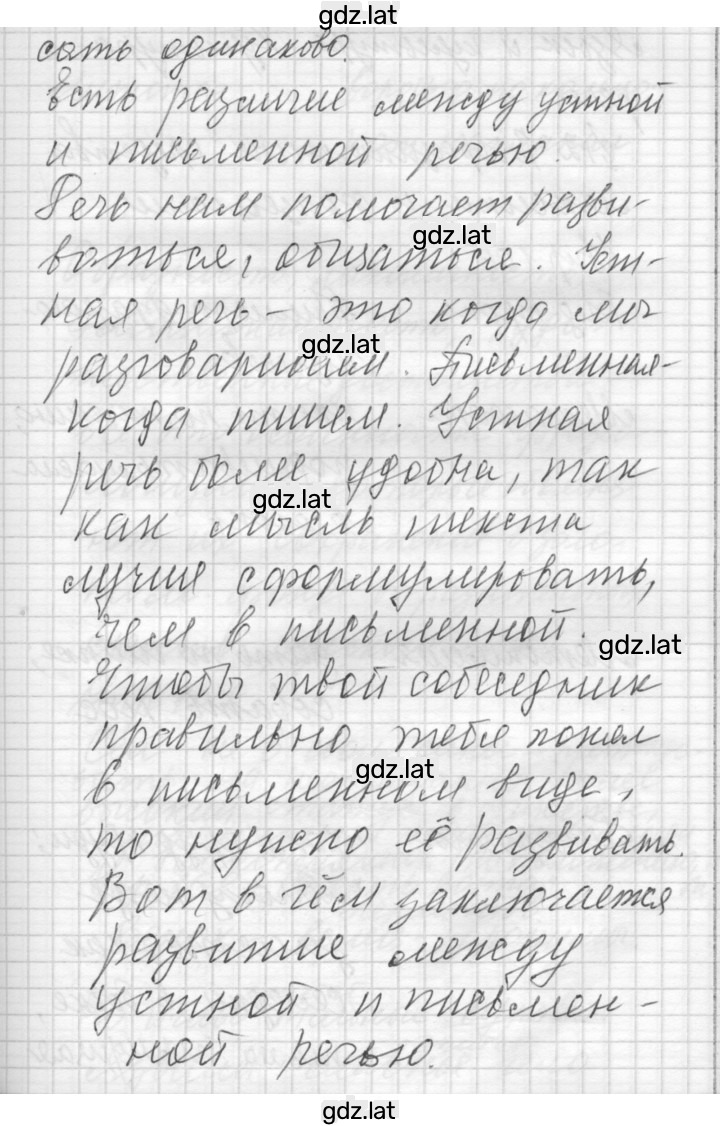 gdz.lat
сать одинаково.
Есть различие между устной
и письменной речью.
Речь нам помогает разви-
ваться, общаться. Уст-
gdz.lat
ная речь – это когда мы
gdz.lat
разговариваем. Письменная-
когда пишем. Устная
речь более удобна, так
gdz.lat
как мысль текста
лучше сформулировать,
чем в письменной.
gdz.lat
Чтобы твой собеседник
правильно тебя понял
gdz.lat
в письменном виде,
то нужно её развивать.
Вот в чём заключается
развитие между
устной и письмен-
ной речью.
gdz.lat